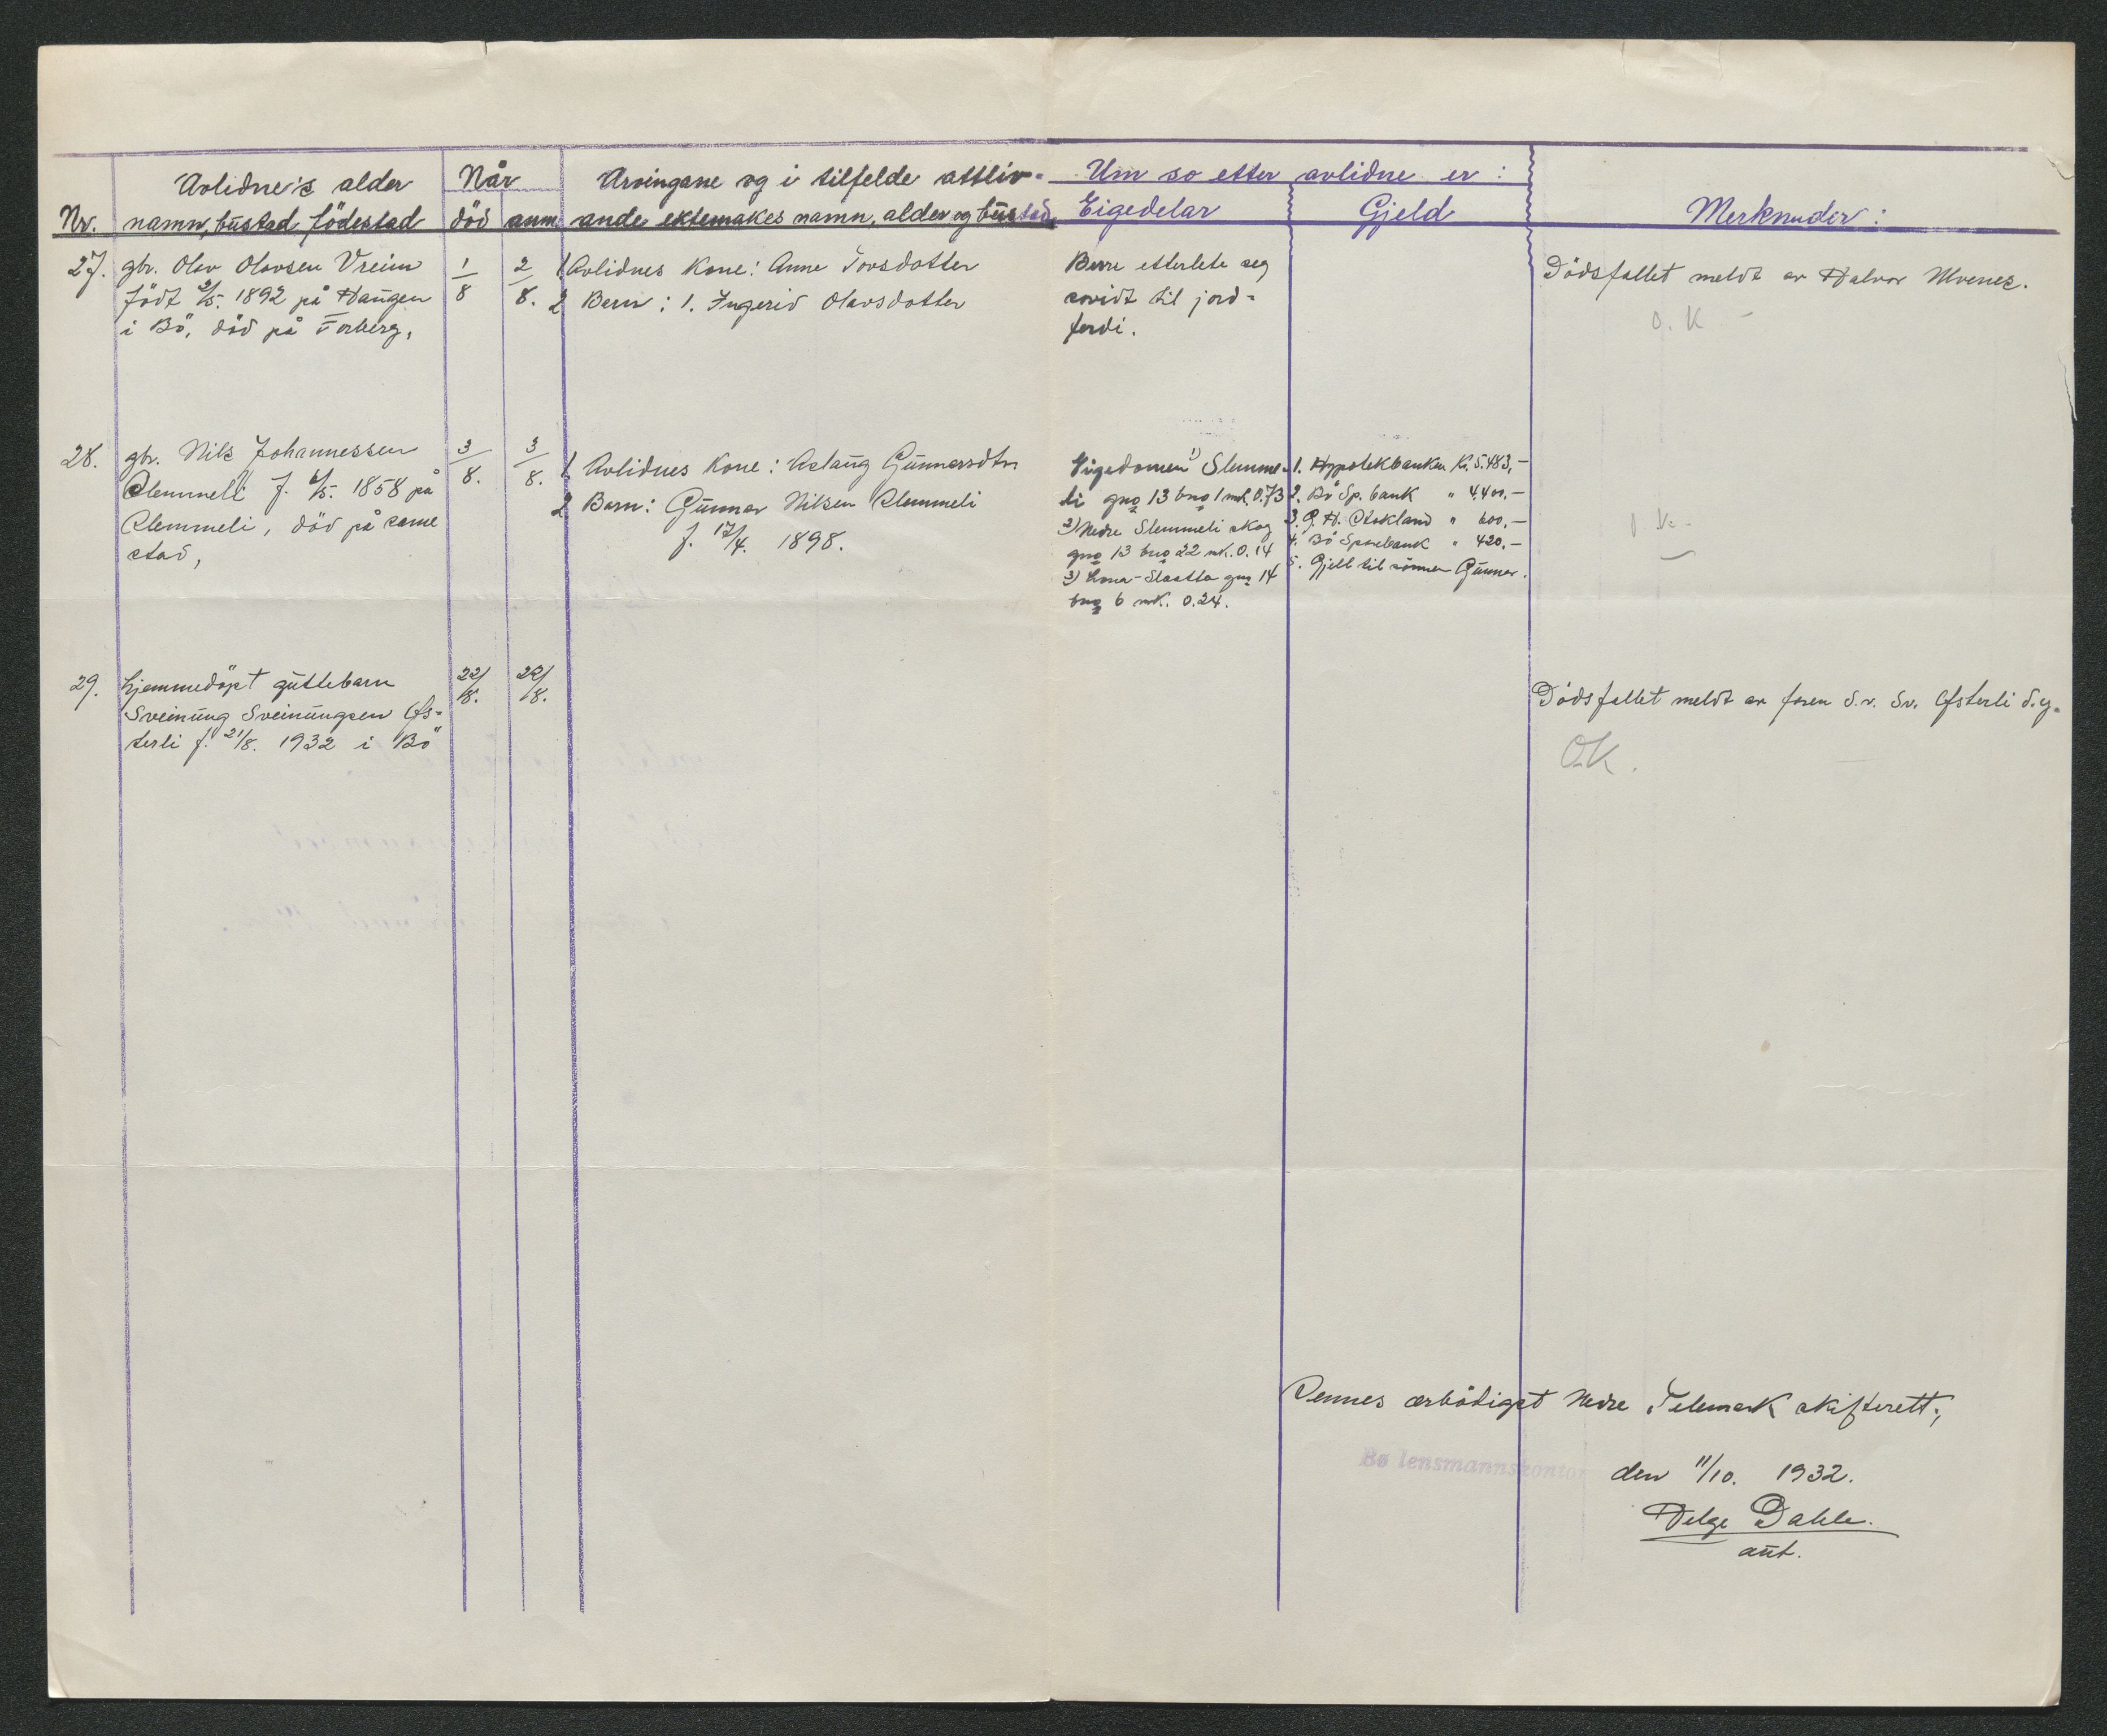 Avlidne's alder
Nr. namn, bustad, födestad
Når
död anm.
Arvingane og i tilfelde attliv-
ande ektemakes namn, alder og bustad
Um so etter avlidne er:
Eigedelar Gjeld
Merknader:
27. gbr. Olav Olavsen Vreim
födt 2/5. 1892 på Haugen
i Bö, död på Forberg,
1/8
2/8.
1 Avlidnes Kone: Anne Tovsdotter
2 Barn: 1. Ingerid Olavsdotter
Berre etterlete seg
sovidt til jord-
ferdi.
Dödsfallet meldt av Halvor Ulvenes.
O.K
28. gbr. Nils Johannessen
Slemmeli f. 6/5. 1858 på
Slemmeli, död på same
stad,
3/8.
3/8.
1 Avlidnes Kone: Aslaug Gunnarsdtr
2 Barn: Gunnar Nilsen Slemmeli
f. 17/4. 1898.
Eigedomen 1) Slemme-
li gno 13 bno 1 mk. 0.73
2) Nedre Slemmeli skog
gno 13 bno 22 mk. 0.14
3) Lona-Slaatta gno 14
bno 6 mk. 0.24.
1. Hypotekbanken Kr. 5.483,-
2. Bö Sp. bank " 4.400.-
3. G. H. Stokland " 600,-
4. Bö Sparebank " 420,-
5. Gjeld til sönnen Gunnar.
29. hjemmedöpt guttebarn
Sveinung Sveinungsen Øs-
terli f. 21/8. 1932 i Bö
22/8.
29/8.
Dödsfallet meldt av faren S. v. Sv. Østerli d.y.
O.K.
Sennes ærbödigst Nedre Telemark skifterett,
Bø lensmannskontor
den 11/10. 1932.
Helge Dahle.
aut.